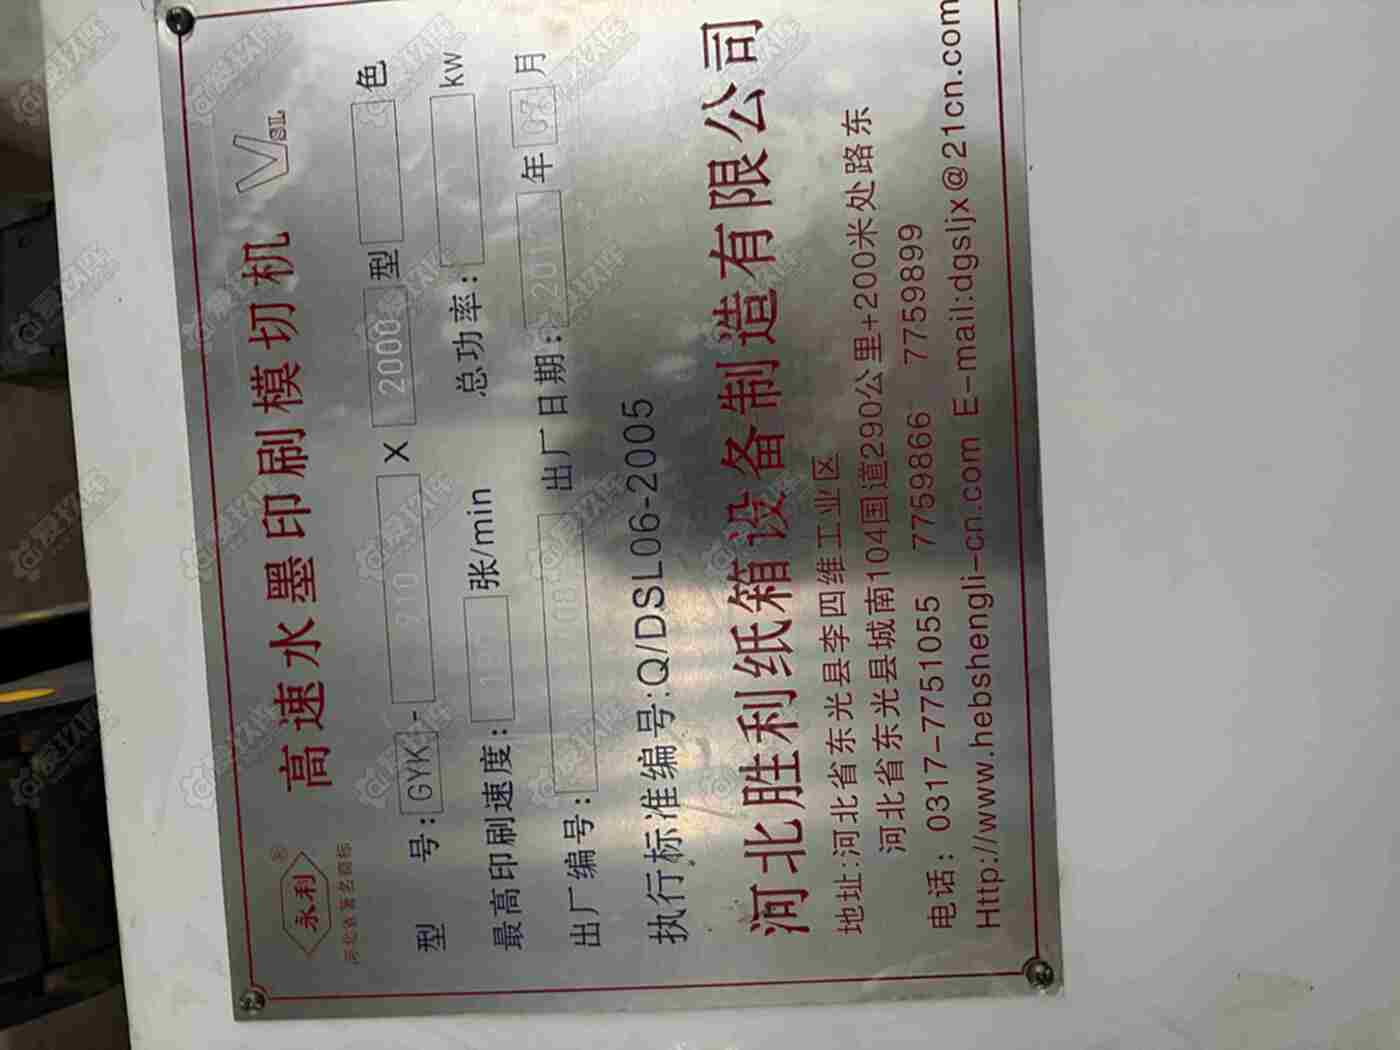 永利®
河北省著名商标
高速水墨印刷模切机
VSL
型 号:GYK-910X2000型 色
最高印刷速度: 张/min 总功率: kw
出厂编号: 出厂日期: 年07月
执行标准编号:Q/DSL06-2005
河北胜利纸箱设备制造有限公司
地址:河北省东光县李四维工业区
河北省东光县城南104国道290公里+200米处路东
电话: 0317-7751055 7759866 7759899
Http://www.hebshengli-cn.com E-mail:dgsljx@21cn.com